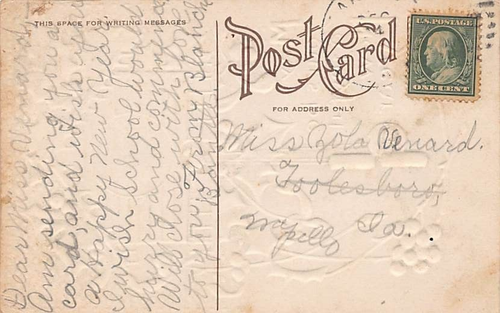 THIS SPACE FOR WRITING MESSAGES
Dear Miss Venard.
Am sending you a
card, and wish you
a Happy New Year
I wish School would
hurry and commence
Will close with love
to you From Blanch
Post Card
FOR ADDRESS ONLY
U.S. POSTAGE
ONE CENT
Miss Zola Venard.
Toolesboro,
Ia.